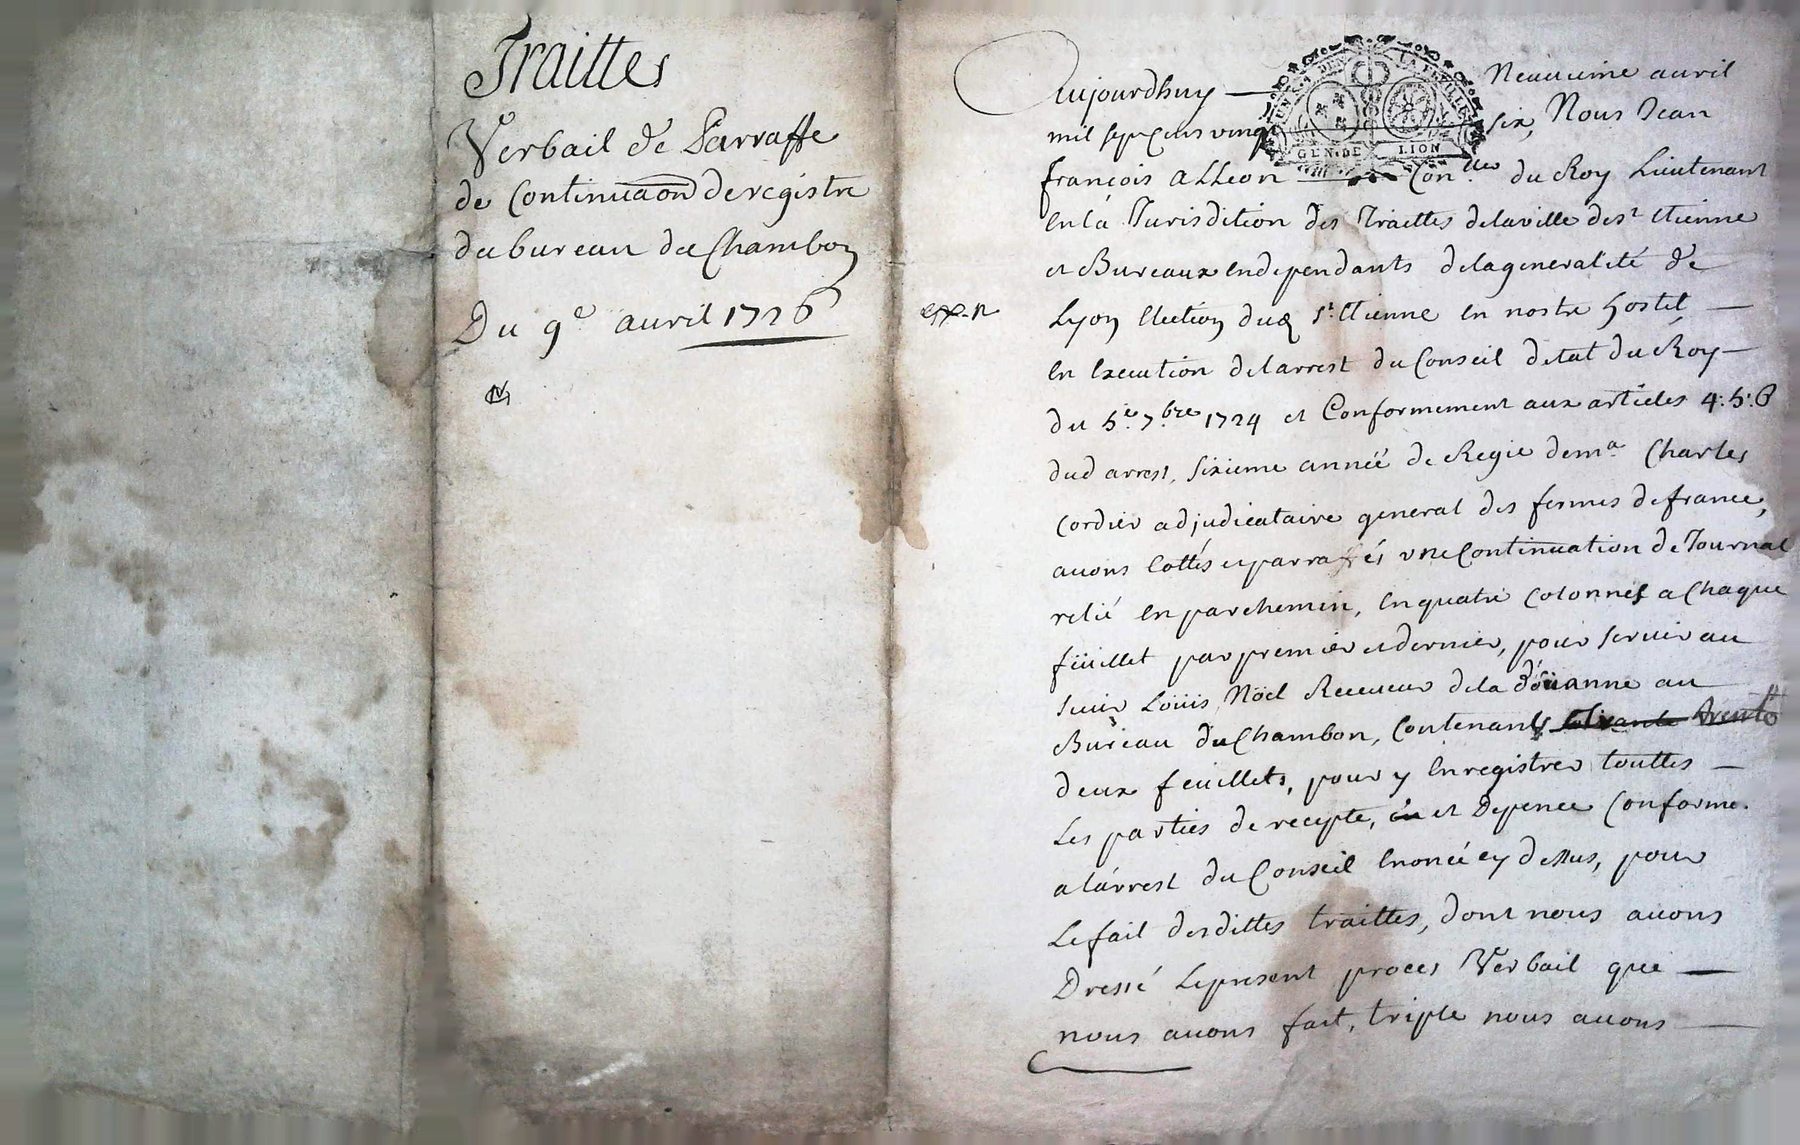 Traittes
Verbail de Parraffe
de Continuãon de registre
du bureau du Chambon
Du 9e avril 1726
Aujourdhuy — Neuvieme avril
mil sept Cens vingt six, Nous Jean
françois alleon Con.ller du Roy Lieutenant
en la Jurisdition des Traittes delaville de st Etienne
et Bureaux endependants delageneralité de
Lyon Election dud st. Etienne en nostre hostel —
en Execution delarrest du Conseil detat du Roy —
du 5.e 7.bre 1724 et Conformement aux articles 4: 5: 6
dud arrest, sixieme année de Regie de me. Charles
Cordier adjudicataire general des fermes de france,
avons Cottés et parrafés vne Continuation de Journal
relié en parchemin, en quatre Colonnes a Chaque
feüillet par premier et dernier, pour servir au
sieur Loüis Nöel Receveur dela doüanne au
Bureau du Chambon, Contenant trente
deux feuillets, pour y Enregistrer touttes —
Les parties de recepte, et Depence Conforme.
a larrest du Conseil Enoncé cy dessus, pour
Le fait desdittes traittes, dont nous avons
Dressé Le present proces Verbail que —
nous avons fait, triple nous avons —
GEN. DE LION